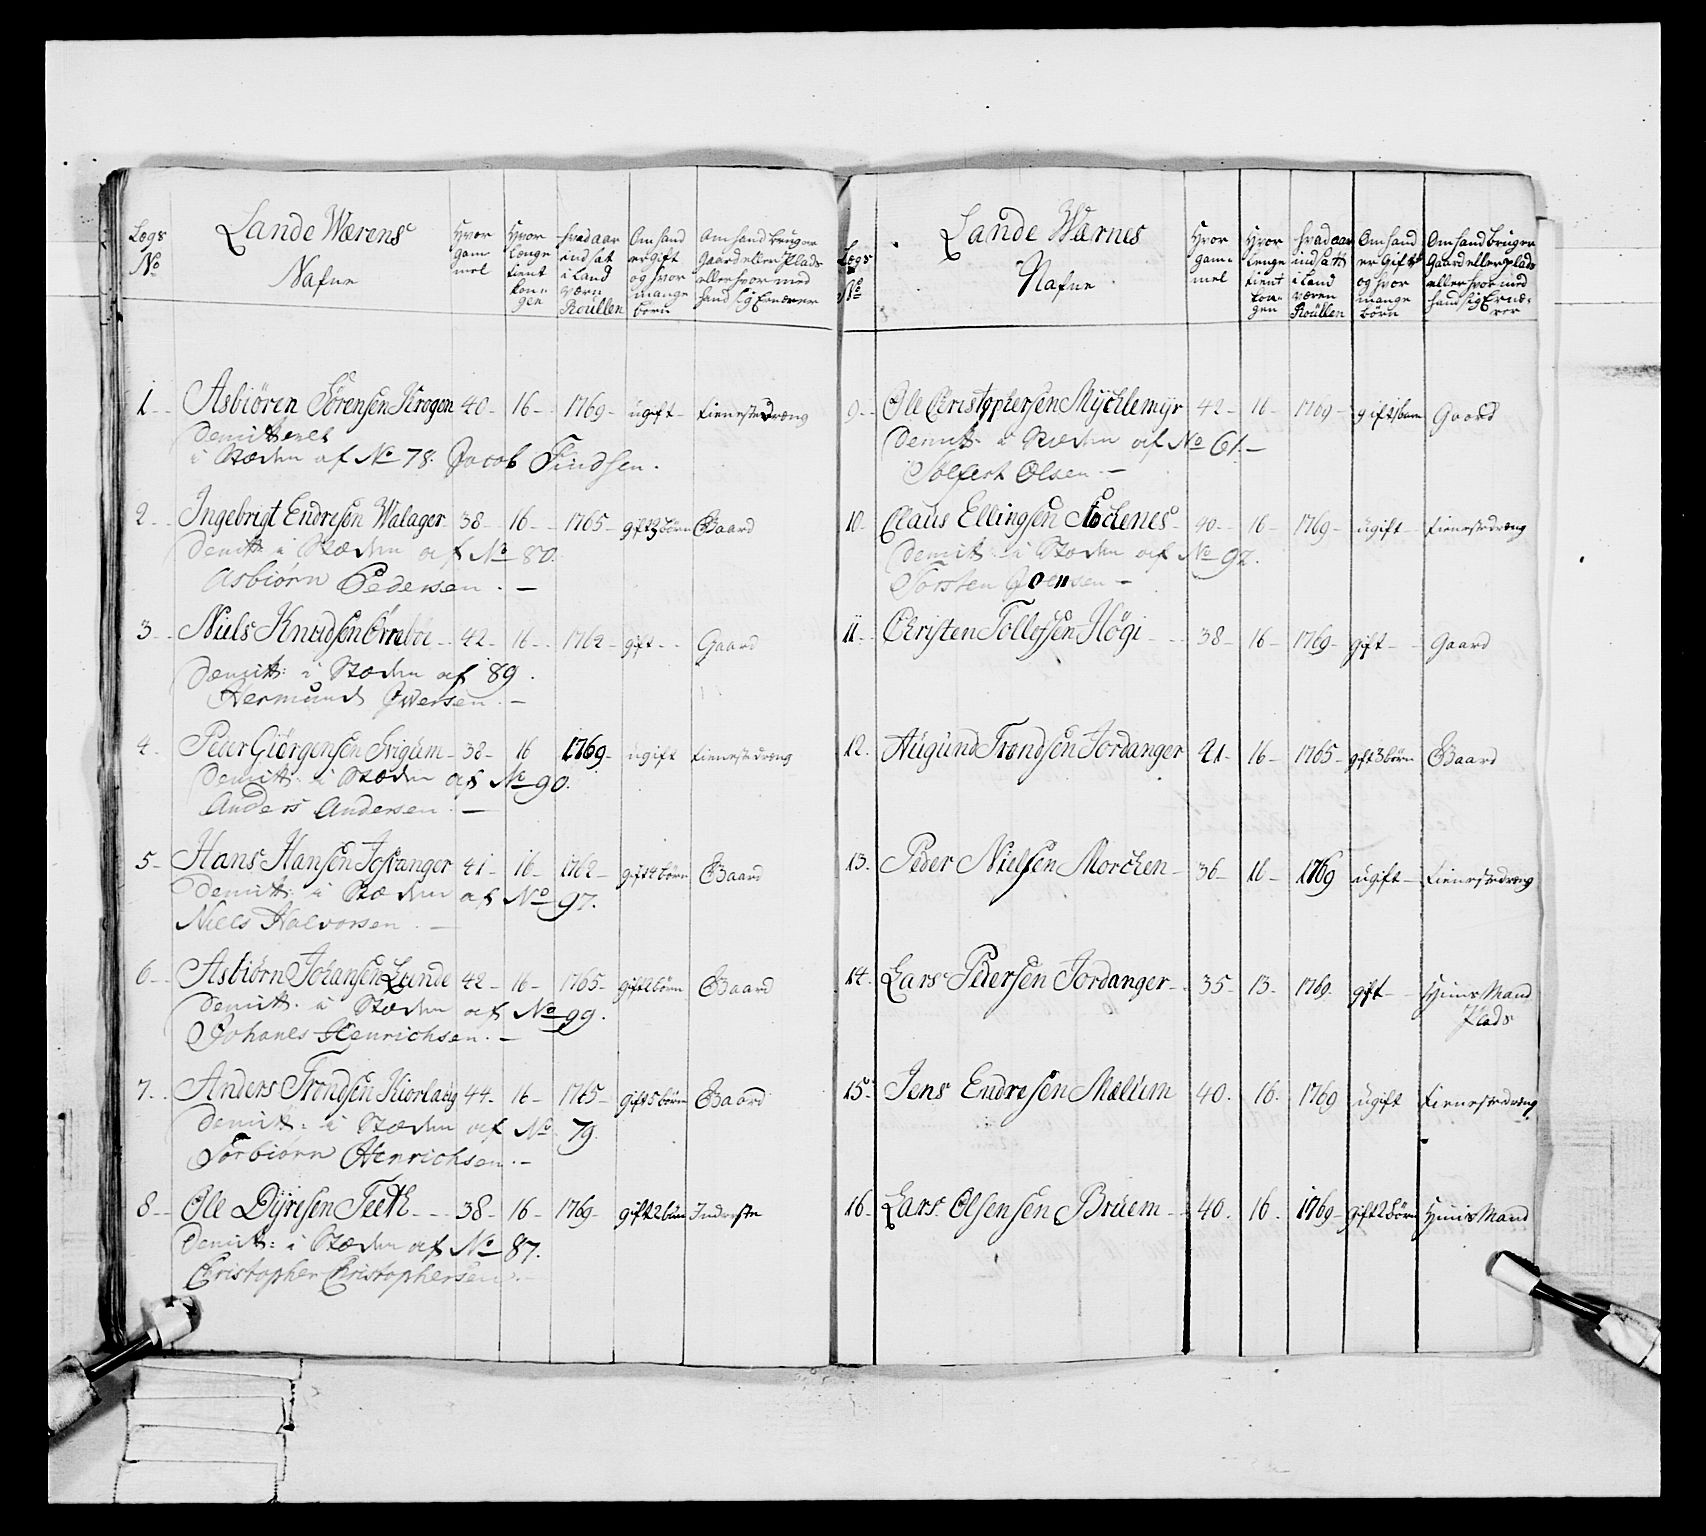 Lægs No
Lande Wærens Nafne
Hvor gam mel
Hvor lenge tient kon= gen
hvad aar indsat i Land værn Roüllen
Om hand er gift og hvor mange børn
Om hand bruger Gaard eller Plads eller hvor med hand sig Ernærer
1 Asbiören Sörensen Krogen 40 16 1769 ugift tienestedræng
Demitteret
i Stæden af No 78. Jacob Findsen.
2 Ingebrigt Endresen Walager 38 16 1765 gift 3 börn Gaard
Demitt: i Stæden af No 80.
Asbiörn Pedersen. —
3 Niels Knudsen 42 16 1762 gift Gaard
Demitt: i Stæden af 89.
Hermund Iversen. —
4 Peder Giörgensen Frigum 38 16 1769 ugift tienestedræng
Demitt: i Stæden af No 90.
Anders Andersen. —
5 Hans Hansen Jostanger 41 16 1762 gift 4 börn Gaard
Demitt: i Stæden af No 97.
Niels Halvorsen. —
6 Asbiörn Johansen Lunde 42 16 1765 gift 2 börn Gaard
Demitt: i Stæden af No 99.
Johanes Henrichsen. —
7 Anders Trondsen 44 16 1765 gift 5 börn Gaard
Demitt: i Stæden af No 79.
Torbiörn Henrichsen. —
8 Ole Dÿresen Teeth 38 16 1769 gift 2 börn Inderste
Demitt: i Stæden af No 87.
Christopher Christophersen. —
Lægs No
Lande Wærnes Nafne
Hvor gam= mel
Hvor lenge tient kon= gen
hvad aar indsatt i Land væren Roüllen
Om hand er Gift og hvor mange börn
Om hand bruger Gaard eller Plads eller hvor med hand sig Ernæ= rer
9 Ole Christophersen Mÿchlemÿr 42 16 1769 gift 1 barn Gaard
Demitt: i Stæden af No 61. —
Solfest Olsen. —
10 Claus Ellingsen 40 16 1769 ugift tienestedræng
Demitt: i Stæden af No 92.
Torsten Joensen —
11 Christen Tollefsen Högi 38 16 1769 gift Gaard
12. Augund Trondsen Jordanger 41 16 1765 gift 3 börn Gaard
13. Peder Nielsen Morchen 36 16 1769 ugift tienestedræng
14. Lars Pedersen Jordanger 35 13 1769 gift Huus Mand
Plads
15 Jens Endresen Mælum 40. 16. 1769 ugift tienestedræng
16 Lars Olsensen Bruem 40. 16. 1769 gift 2 börn Huus Mand